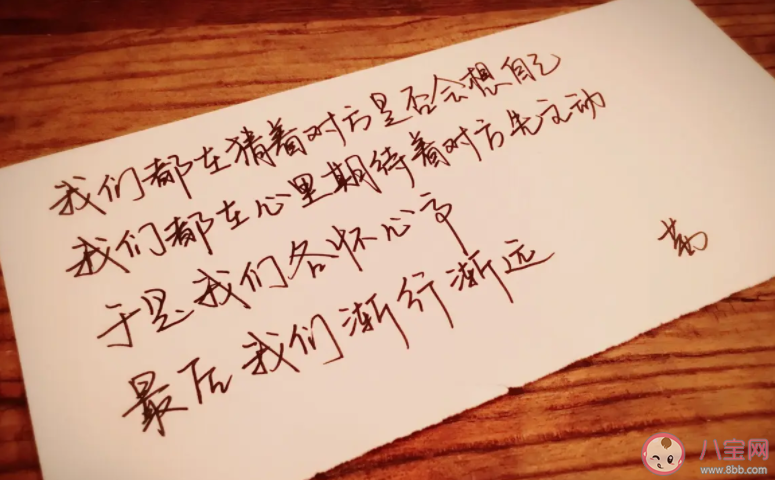 我们都在猜着对方是否会想自己
我们都在心里期待着对方先主动
于是我们各怀心事
最后我们渐行渐远
八宝网
www.8bb.com